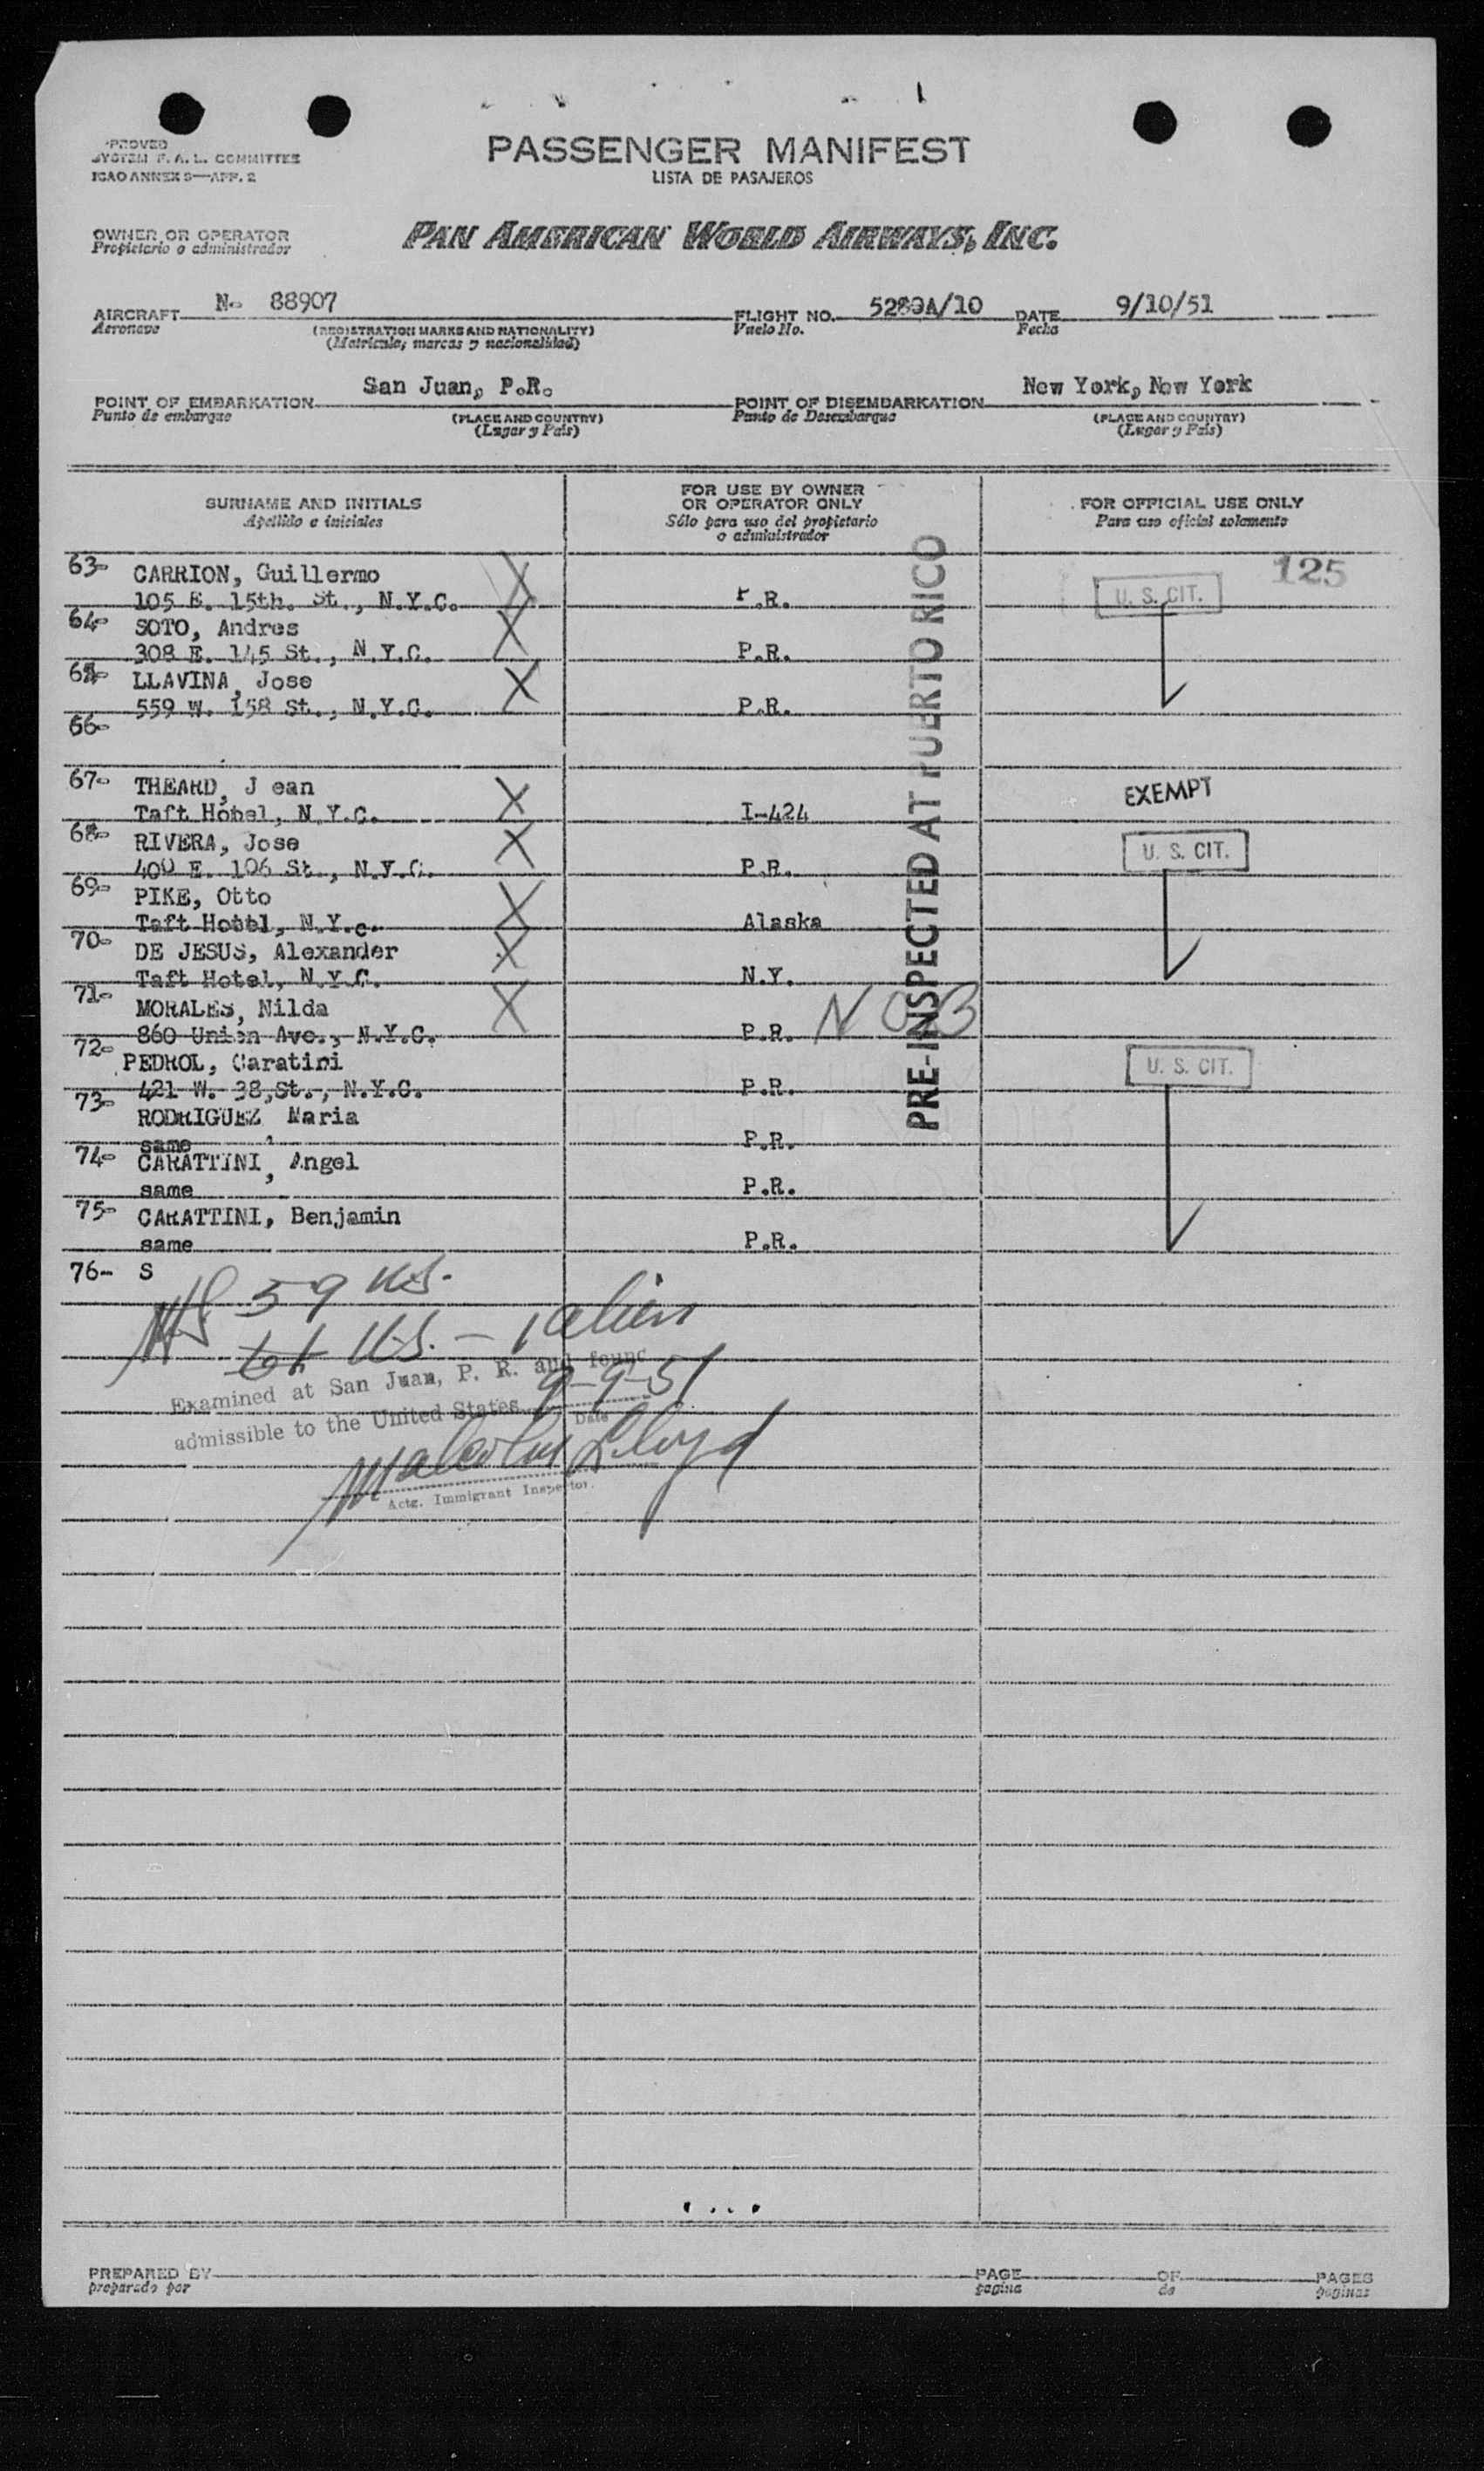 PROVED
SYSTEM F. A. L. COMMITTEE
ICAO ANNEX 9—APP. 2
PASSENGER MANIFEST
LISTA DE PASAJEROS
OWNER OR OPERATOR
Propietario o administrador
PAN AMERICAN WORLD AIRWAYS, INC.
AIRCRAFT N- 88907
Aeronave
(REGISTRATION MARKS AND NATIONALITY)
(Matricula, marcas y nacionalidad)
FLIGHT NO. 5289A/10
Vuelo No.
DATE 9/10/51
Fecha
POINT OF EMBARKATION San Juan, P.R.
Punto de embarque
(PLACE AND COUNTRY)
(Lugar y País)
POINT OF DISEMBARKATION New York, New York
Punto de Desembarque
(PLACE AND COUNTRY)
(Lugar y País)
SURNAME AND INITIALS
Apellido e iniciales
FOR USE BY OWNER
OR OPERATOR ONLY
Sólo para uso del propietario
o administrador
FOR OFFICIAL USE ONLY
Para uso oficial solamente
125
PRE-INSPECTED AT PUERTO RICO
63- CARRION, Guillermo X
105 E. 15th. St., N.Y.C. P.R. U. S. CIT.
64- SOTO, Andres X
308 E. 145 St., N.Y.C. P.R.
65- LLAVINA, Jose X
559 W. 158 St., N.Y.C. P.R.
66-
67- THEARD, J ean X EXEMPT
Taft Hotel, N.Y.C. I-424
68- RIVERA, Jose X U. S. CIT.
400 E. 106 St., N.Y.C. P.R.
69- PIKE, Otto X
Taft Hotel, N.Y.c. Alaska
70- DE JESUS, Alexander X
Taft Hotel, N.Y.C. N.Y.
71- MORALES, Nilda X
860 Union Ave., N.Y.C. P.R. NOB
72- PEDROL, Caratini U. S. CIT.
421 W. 38,St., N.Y.C. P.R.
73- RODRIGUEZ, Maria
same P.R.
74- CARATTINI, Angel
same P.R.
75- CARATTINI, Benjamin
same P.R.
76- S
59 US.
61 US. - 1 alien
Examined at San Juan, P. R. and found
admissible to the United States 9-9-51
Date
Malcolm Lloyd
Actg. Immigrant Inspector.
PREPARED BY
preparado por
PAGE OF PAGES
pagina de paginas